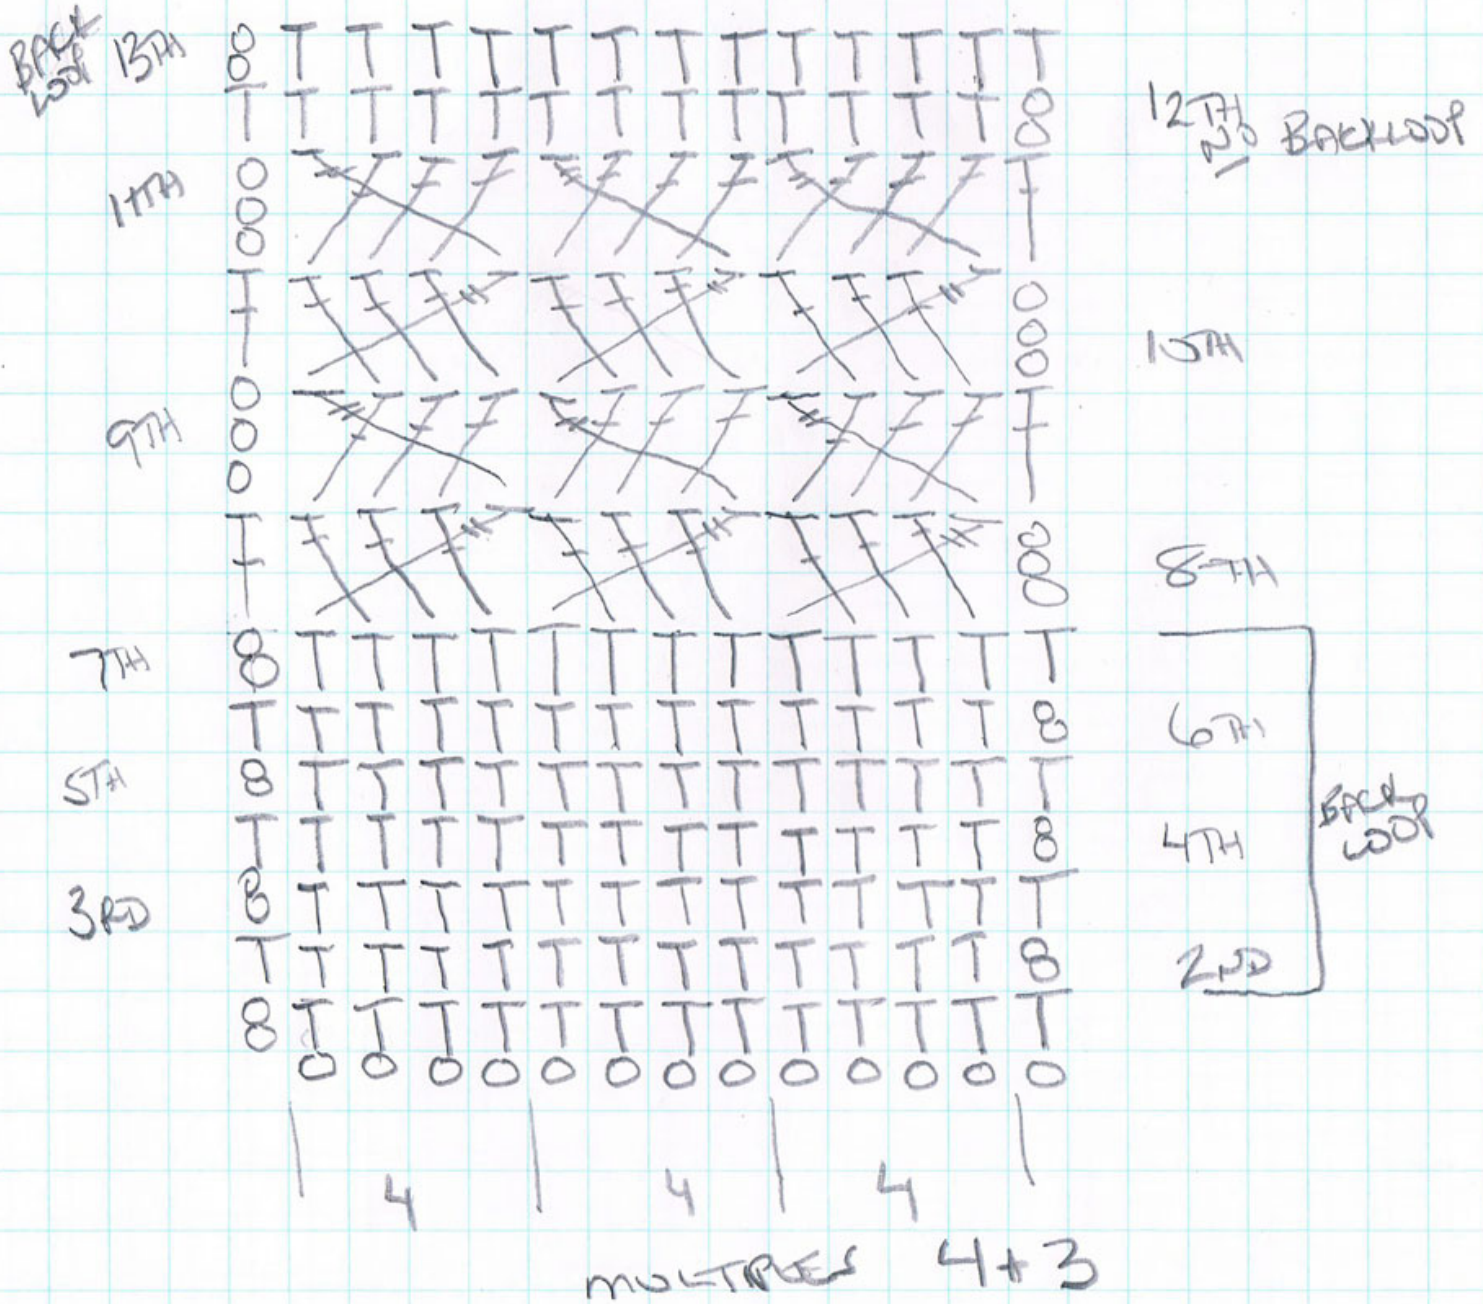 BACK LOOP 13TH
12TH NO BACKLOOP
11TH
10TH
9TH
8TH
7TH
6TH
5TH
4TH
BACK LOOP
3RD
2ND
4 4 4
MULTIPLES 4+3